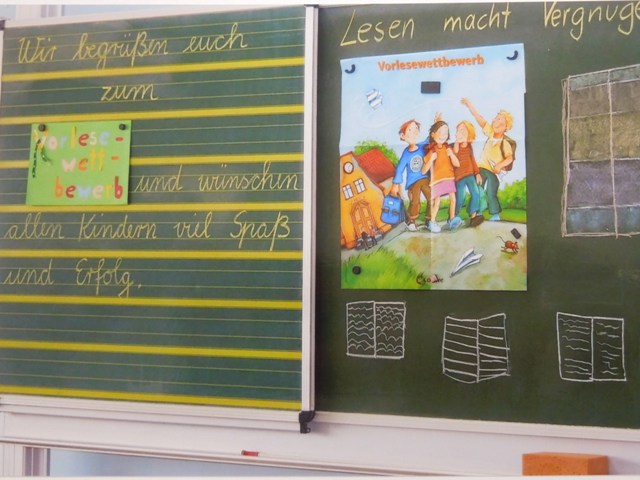 Wir begrüßen euch
zum
Vorlese-
wett-
bewerb
und wünschen
allen Kindern viel Spaß
und Erfolg.
Lesen macht Vergnüge
Vorlesewettbewerb